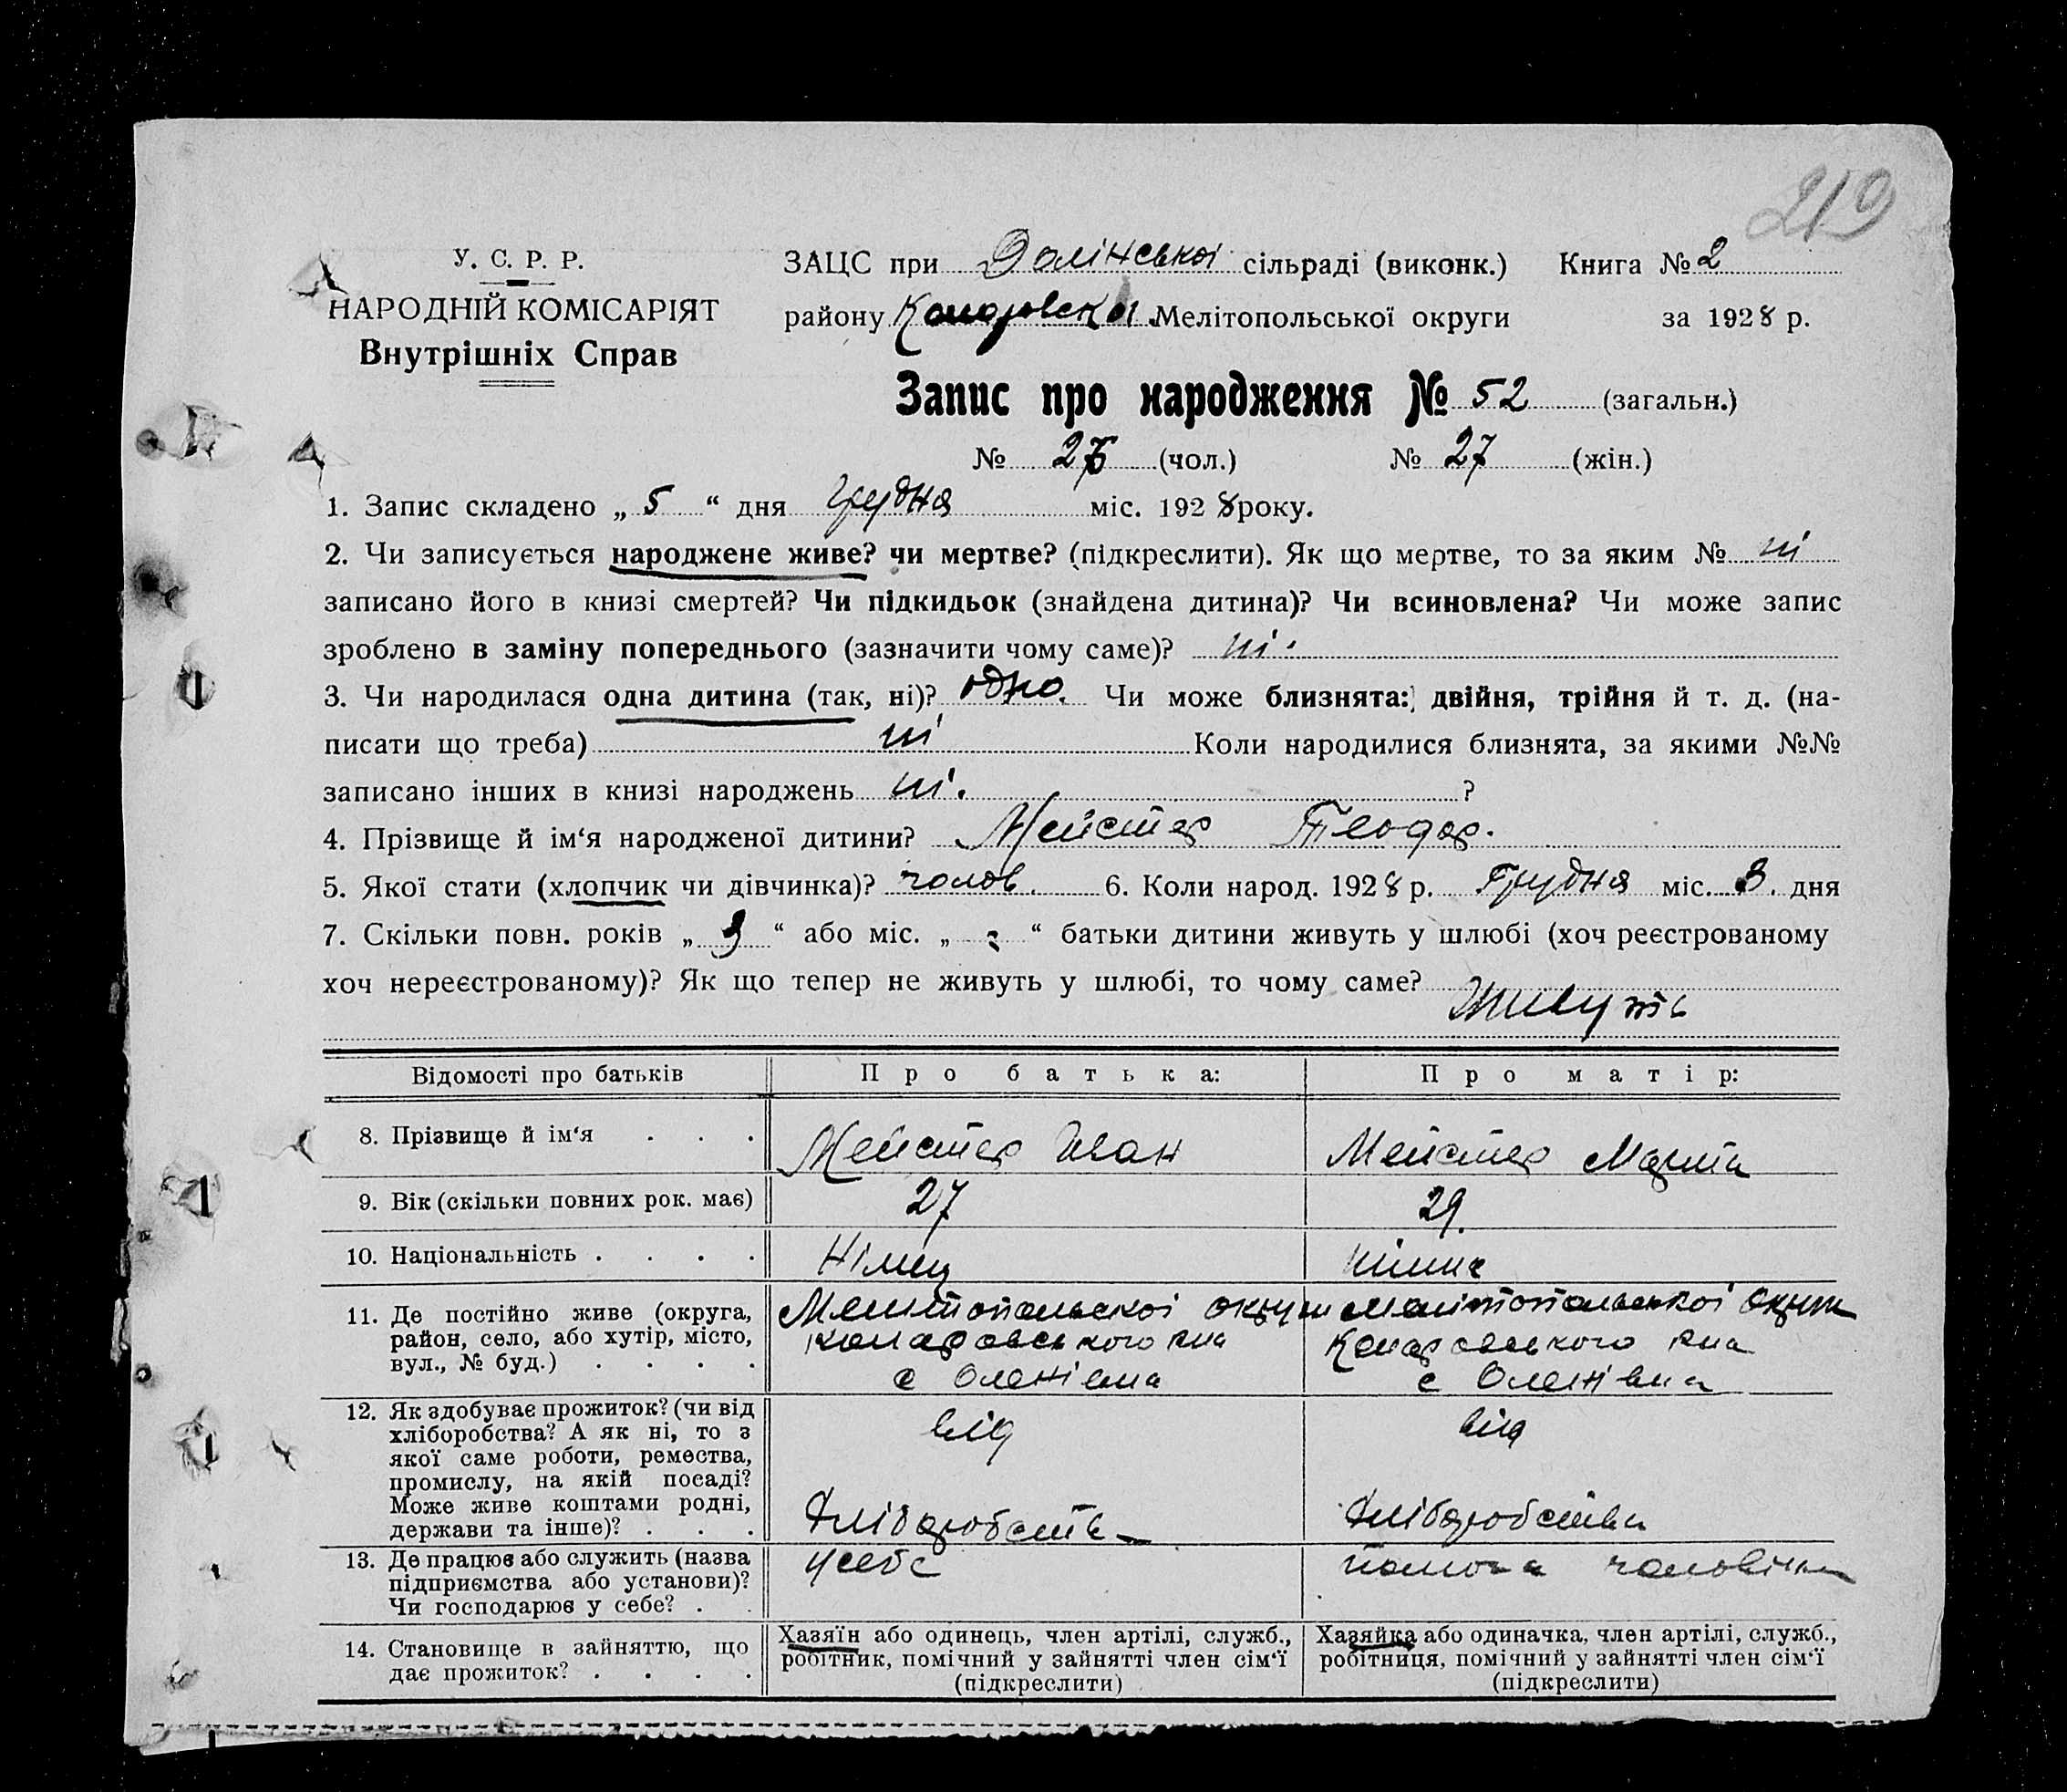 219
У. С. Р. Р.
НАРОДНІЙ КОМІСАРІЯТ
Внутрішніх Справ
ЗАЦС при Долінської сільраді (виконк.) Книга № 2
району Мелітопольської округи за 1928 р.
Запис про народження № 52 (загальн.)
№ (чол.) № 27 (жін.)
1. Запис складено „ 5 “ дня Грудня міс. 1928 року.
2. Чи записується народжене живе? чи мертве? (підкреслити). Як що мертве, то за яким № ні
записано його в книзі смертей? Чи підкидьок (знайдена дитина)? Чи всиновлена? Чи може запис
зроблено в заміну попереднього (зазначити чому саме)? ні.
3. Чи народилася одна дитина (так, ні)? одно. Чи може близнята: двійня, трійня й т. д. (на-
писати що треба) ні Коли народилися близнята, за якими №№
записано інших в книзі народжень ні. ?
4. Прізвище й ім‘я народженої дитини? Мейстер Теодор.
5. Якої стати (хлопчик чи дівчинка)? чолов. 6. Коли народ. 1928 р. Грудня міс. 3. дня
7. Скільки повн. років „ 3 “ або міс. „ “ батьки дитини живуть у шлюбі (хоч реєстрованому
хоч нереєстрованому)? Як що тепер не живуть у шлюбі, то чому саме?
Живуть
Відомості про батьків Про батька: Про матір:
8. Прізвище й ім‘я . . . Мейстер Иван Мейстер Марта
9. Вік (скільки повних рок. має) 27 29.
10. Національність . . . . Німец німка
11. Де постійно живе (округа, Мелітопольської округи Мелітопольської округи
район, село, або хутір, місто, Комаровського р-на Комаровського р-на
вул., № буд.) . . . . с Оленівка с Оленівка
12. Як здобуває прожиток? (чи від від від
хліборобства? А як ні, то з
якої саме роботи, ремества,
промислу, на якій посаді?
Може живе коштами родні, Хліборобств Хліборобства
держави та інше)? . . .
13. Де працює або служить (назва усебе чоловікам
підприємства або установи)?
Чи господарює у себе? . .
14. Становище в зайняттю, що
дає прожиток? . . . .
Хазяїн або одинець, член артілі, служб.,
робітник, помічний у зайнятті член сім‘ї
(підкреслити)
Хазяйка або одиначка, член артілі, служб.,
робітниця, помічний у зайнятті член сім‘ї
(підкреслити)